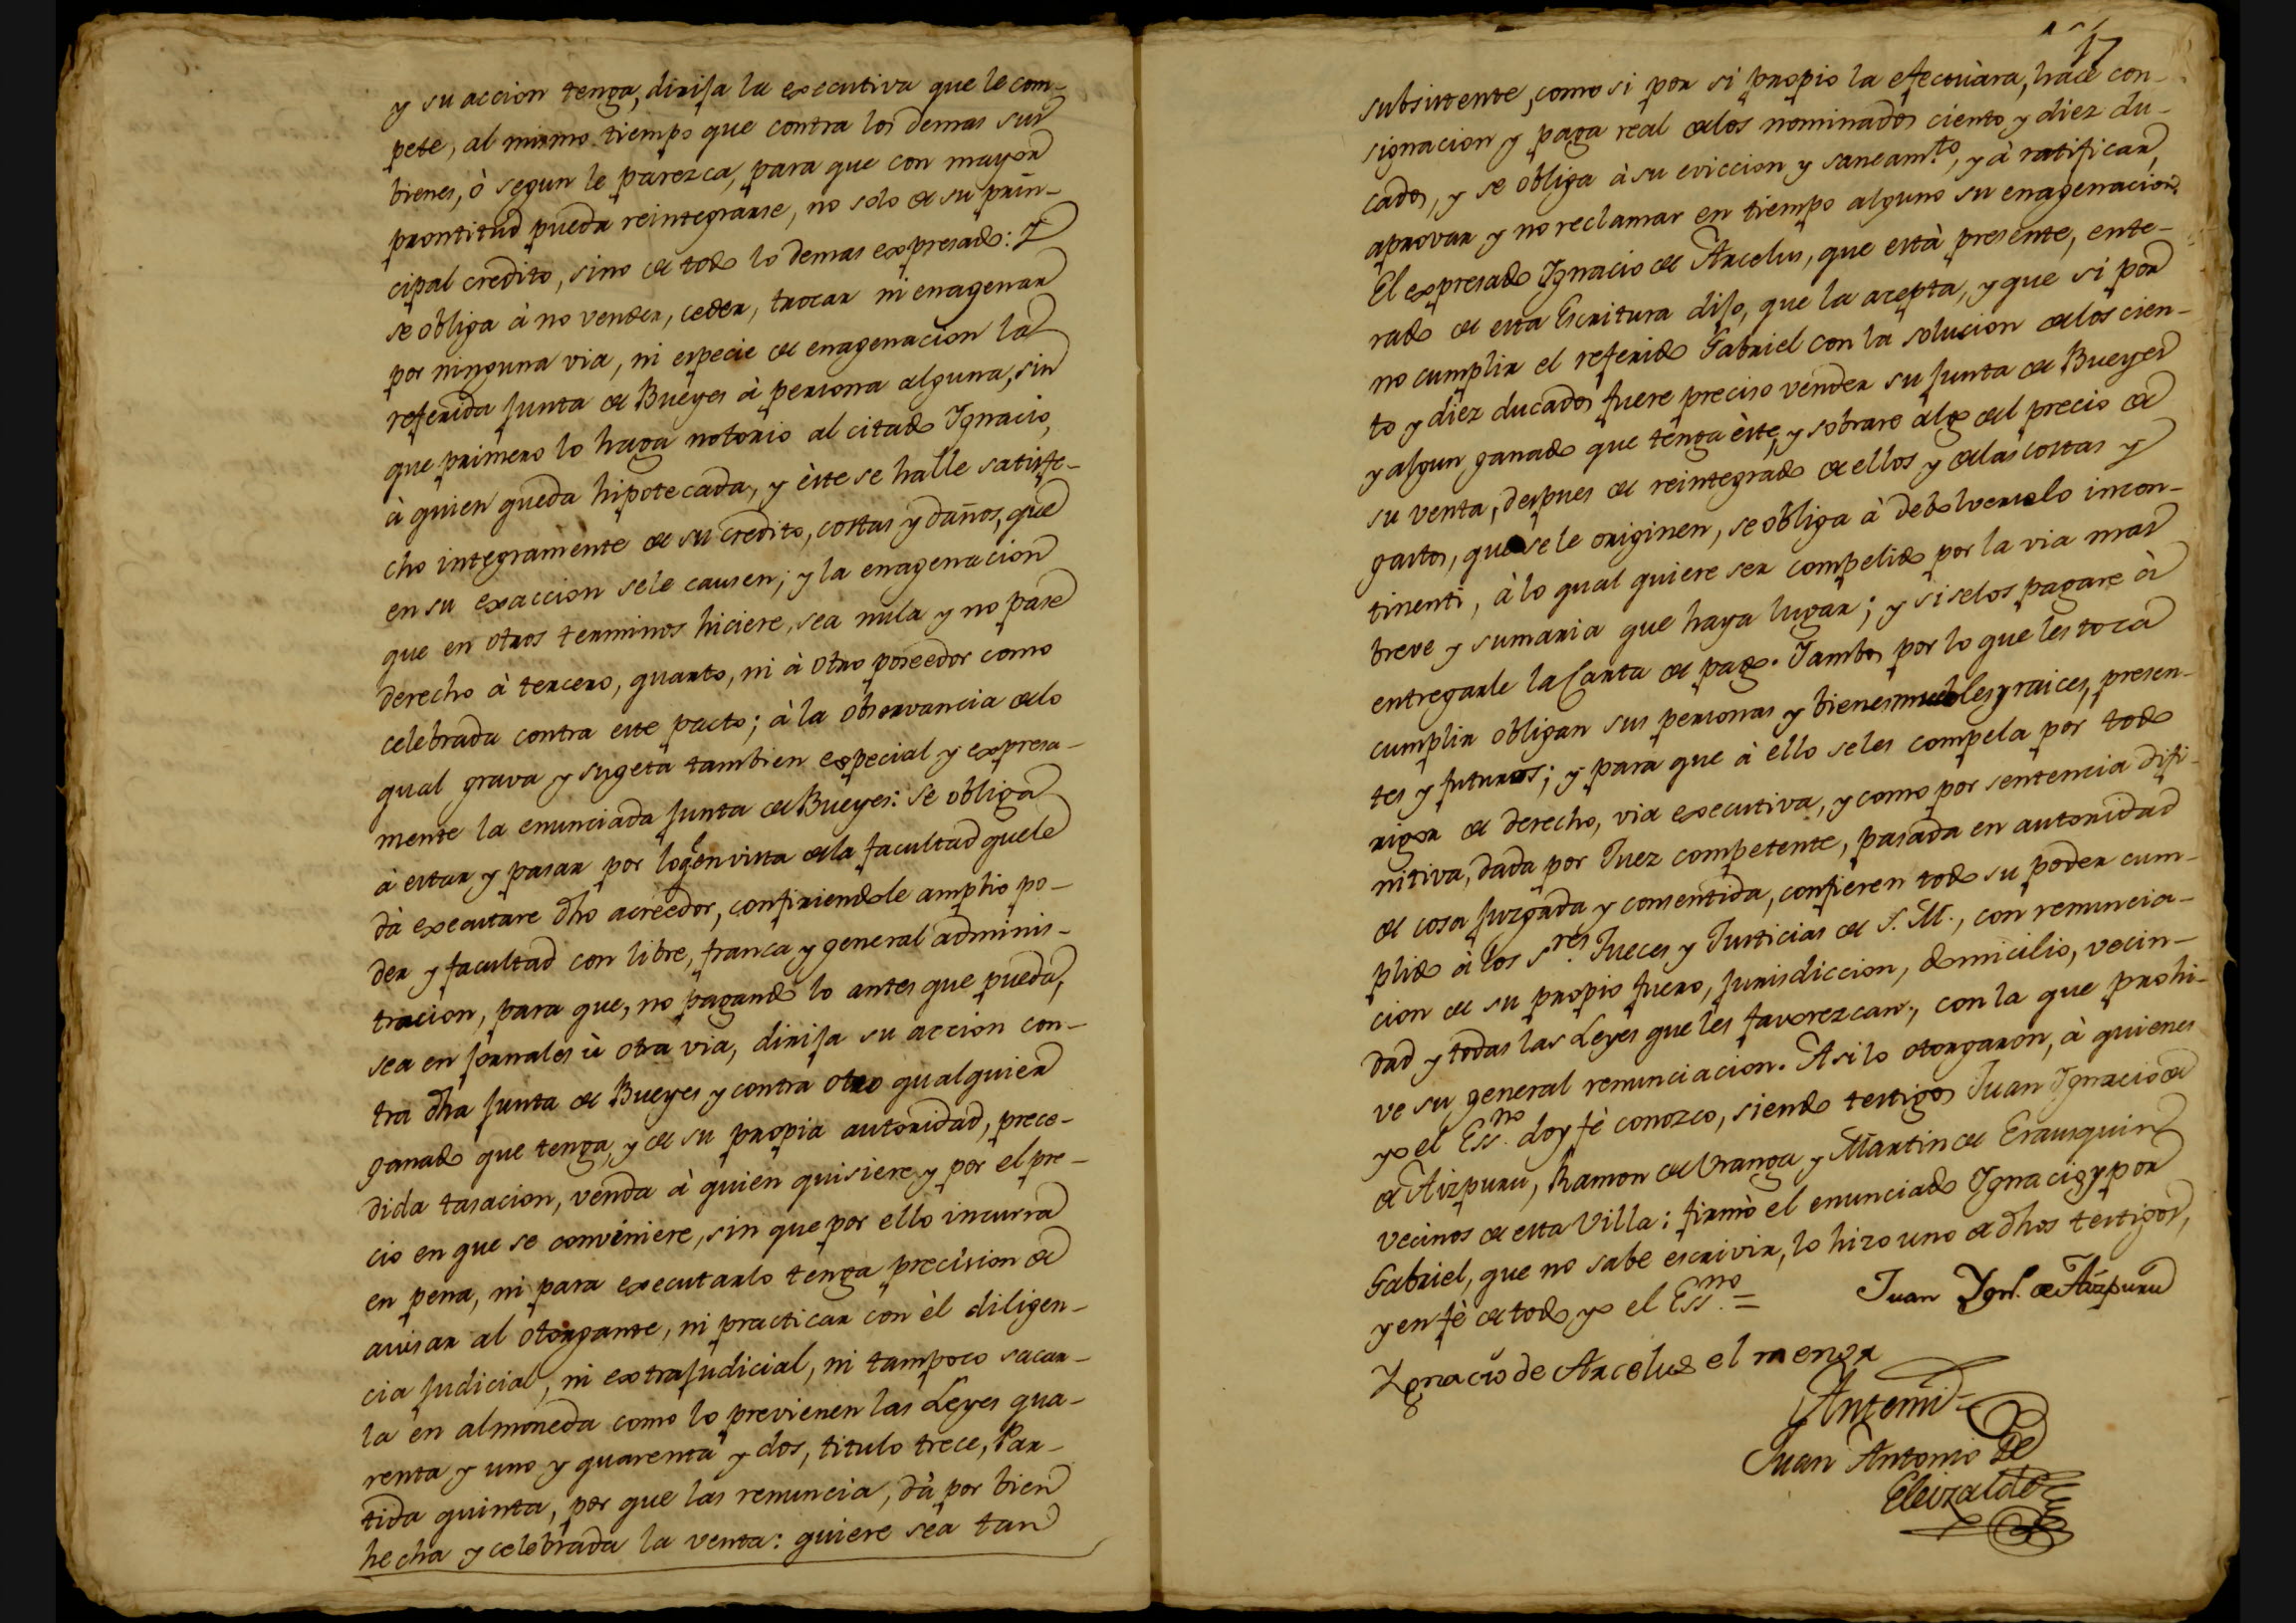 y su accion tenga, dirija la executiva que le com-
pete, al mismo tiempo que contra los demas sus
bienes, ò segun le parezca, para que con mayor
prontitud pueda reintegrarse, no solo de su prin-
cipal credito, sino de todo lo demas expresado: Y
se obliga à no vender, ceder, trocar ni enagenar
por ninguna via, ni especie de enagenacion la
referida Junta de Bueyes à persona alguna, sin
que primero lo haga notorio al citado Ignacio,
à quien queda hipotecada, y èste se halle satisfe-
cho integramente de su credito, costas y daños, que
en su exaccion sele causen; y la enagenacion
que en otros terminos hiciere, sea nula y no pase
derecho à tercero, quarto, ni à otro poseedor como
celebrada contra este pacto; à la observancia delo
qual grava y sugeta tambien especial y expresa-
mente la enunciada Junta de Bueyes: se obliga
à estar y pasar por loq.e en vista dela facultad quele
dà executare dho acreedor, confiriendole amplio po-
der y facultad con libre, franca y general adminis-
tracion, para que, no pagando lo antes que pueda,
sea en jornales ù otra via, dirija su accion con-
tra dha Junta de Bueyes y contra otro qualquier
ganado que tenga, y de su propia autoridad, prece-
dida tasacion, venda à quien quisiere y por el pre-
cio en que se conviniere, sin que por ello incurra
en pena, ni para executarlo tenga precision de
avisar al otorgante, ni practicar con èl diligen-
cia Judicial, ni extrajudicial, ni tampoco sacar-
la en almoneda como lo previenen las Leyes qua-
renta y uno y quarenta y dos, titulo trece, Par-
tida quinta, por que las renuncia, dà por bien
hecha y celebrada la venta: quiere sea tan
17
subsistente, como si por si propio la efectuàra, hace con-
signacion y paga real delos nominados ciento y diez du-
cados, y se obliga à su eviccion y saneam.to, y à ratificar,
aprovar y no reclamar en tiempo alguno su enagenacion.
El expresado Ignacio de Arcelus, que està presente, ente-
rado de esta Escritura dijo, que la acepta, y que si por
no cumplir el referido Gabriel con la solucion delos cien-
to y diez ducados fuere preciso vender su Junta de Bueyes
y algun ganado que tenga èste, y sobrare algo del precio de
su venta, despues de reintegrado de ellos y delas costas y
gastos, que sele originen, se obliga à debolverselo incon-
tinenti, à lo qual quiere ser compelido por la via mas
breve y sumaria que haya lugar; y si selos pagare à
entregarle la Carta de pago. Y ambos por lo que les toca
cumplir obligan sus personas y bienes muebles y raices, presen-
tes y futuros; y para que à ello seles compela por todo
rigor de derecho, via executiva, y como por sentencia difi-
nitiva, dada por Juez competente, pasada en autoridad
de cosa juzgada y consentida, confieren todo su poder cum-
plido à los S.res Jueces y Justicias de S. M., con renuncia-
cion de su propio fuero, Jurisdiccion, domicilio, vecin-
dad y todas las Leyes que les favorezcan, con la que prohi-
ve su general renunciacion. Asi lo otorgaron, à quienes
yo el Ess.no doy fè conozco, siendo testigos Juan Ignacio de
de Aizpuru, Ramon de Uranga y Martin de Erausquin
vecinos de esta Villa: firmò el enunciado Ignacio, y por
Gabriel, que no sabe escrivir, lo hizo uno de dhos testigos,
y en fè de todo, yo el Ess.no =
Juan Ygn.o de Aizpuru
Ygnacio de Arcelus el menor
Antemi
Juan Antonio de
Eleizalde